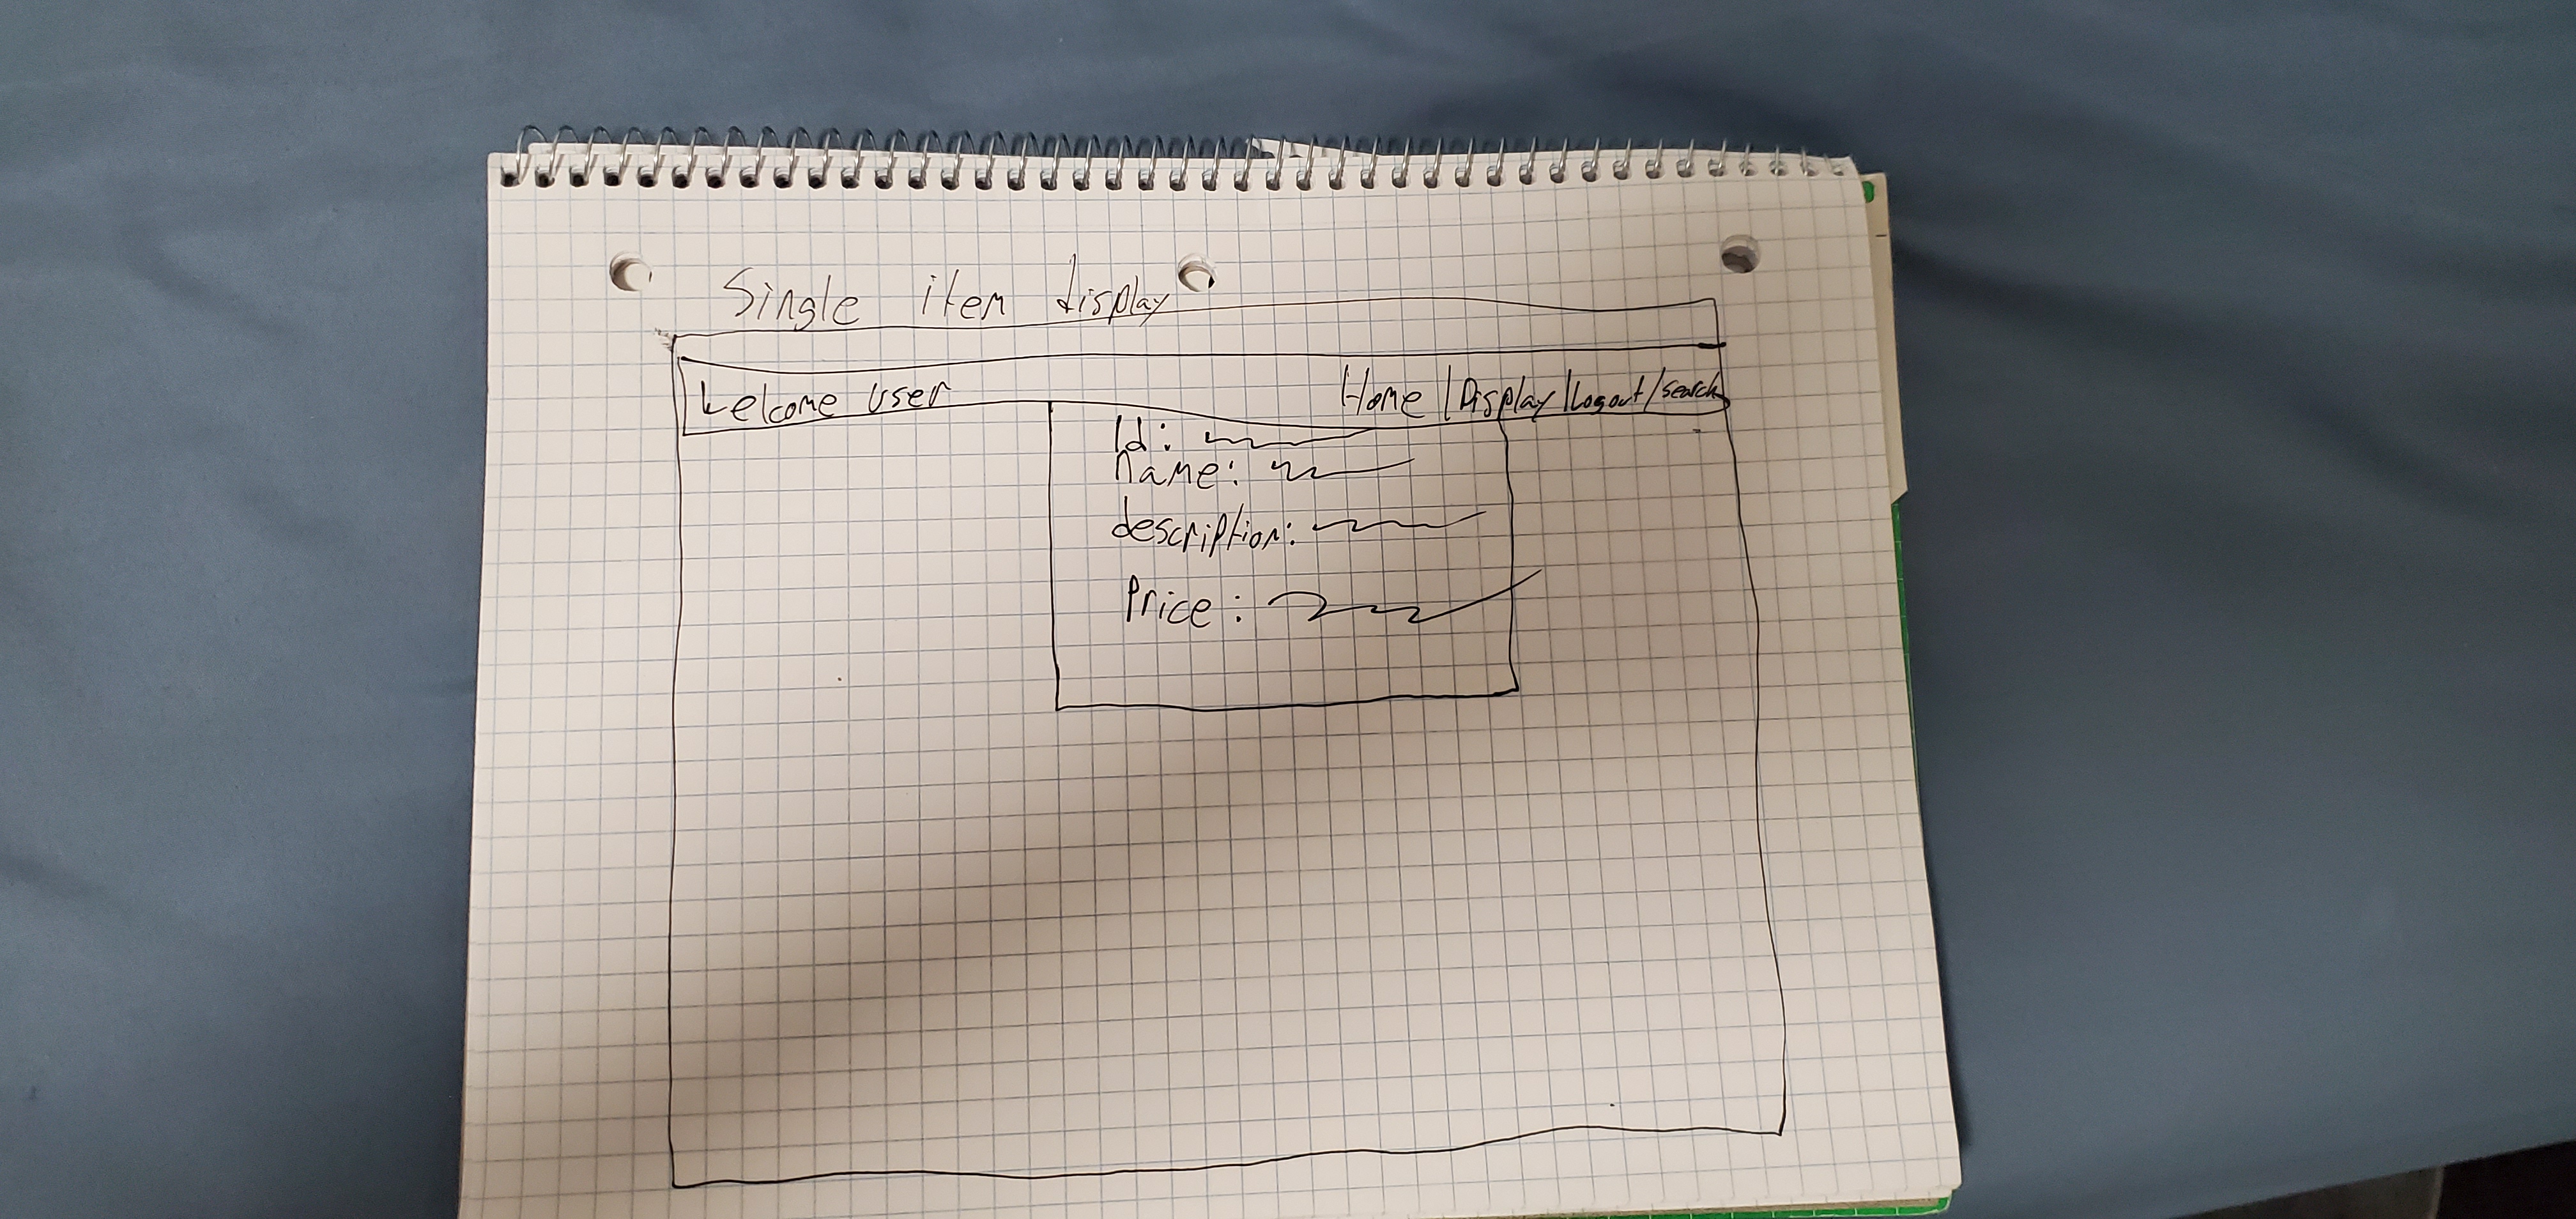 Single item display
Welcome User Home/Display/Logout/search
Id:
Name:
description:
Price: